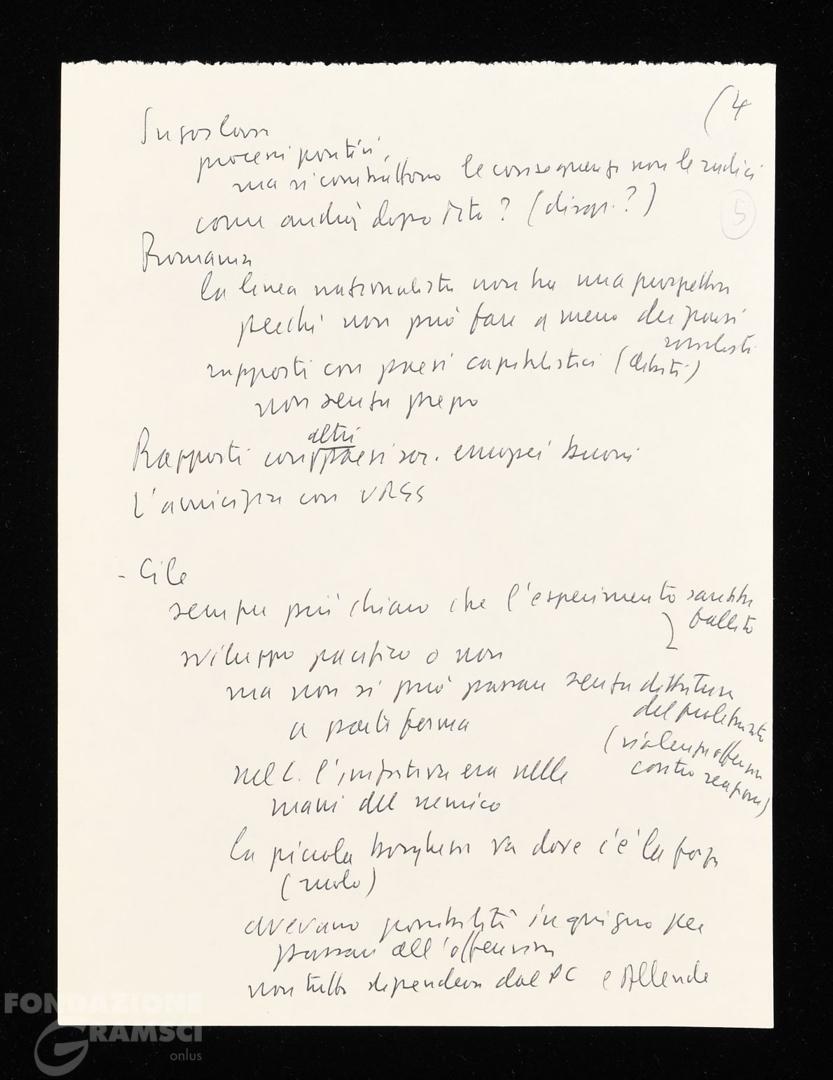 (4
Jugoslavia
processi positivi,
ma si combattono le conseguenze non le radici
5
come andrà dopo Tito? (disgr.?)
Romania
la linea nazionalista non ha una prospettiva
perché non può fare a meno dei paesi
socialisti
rapporti con paesi capitalistici (debiti)
non senza prezzo
altri
Rapporti con paesi soc. europei buoni
L'amicizia con URSS
- Cile
sempre più chiaro che l'esperimento sarebbe
fallito
sviluppo pacifico o non
ma non si può passare senza dittatura
del proletariato
a parte forma
(violenza offensiva
contro reazione)
nel C. l'iniziativa era nelle
mani del nemico
la piccola borghesia va dove c'è la forza
(ruolo)
avevano possibilità in giugno per
passare all'offensiva
non tutto dipendeva dal PC e Allende
FONDAZIONE
GRAMSCI
onlus